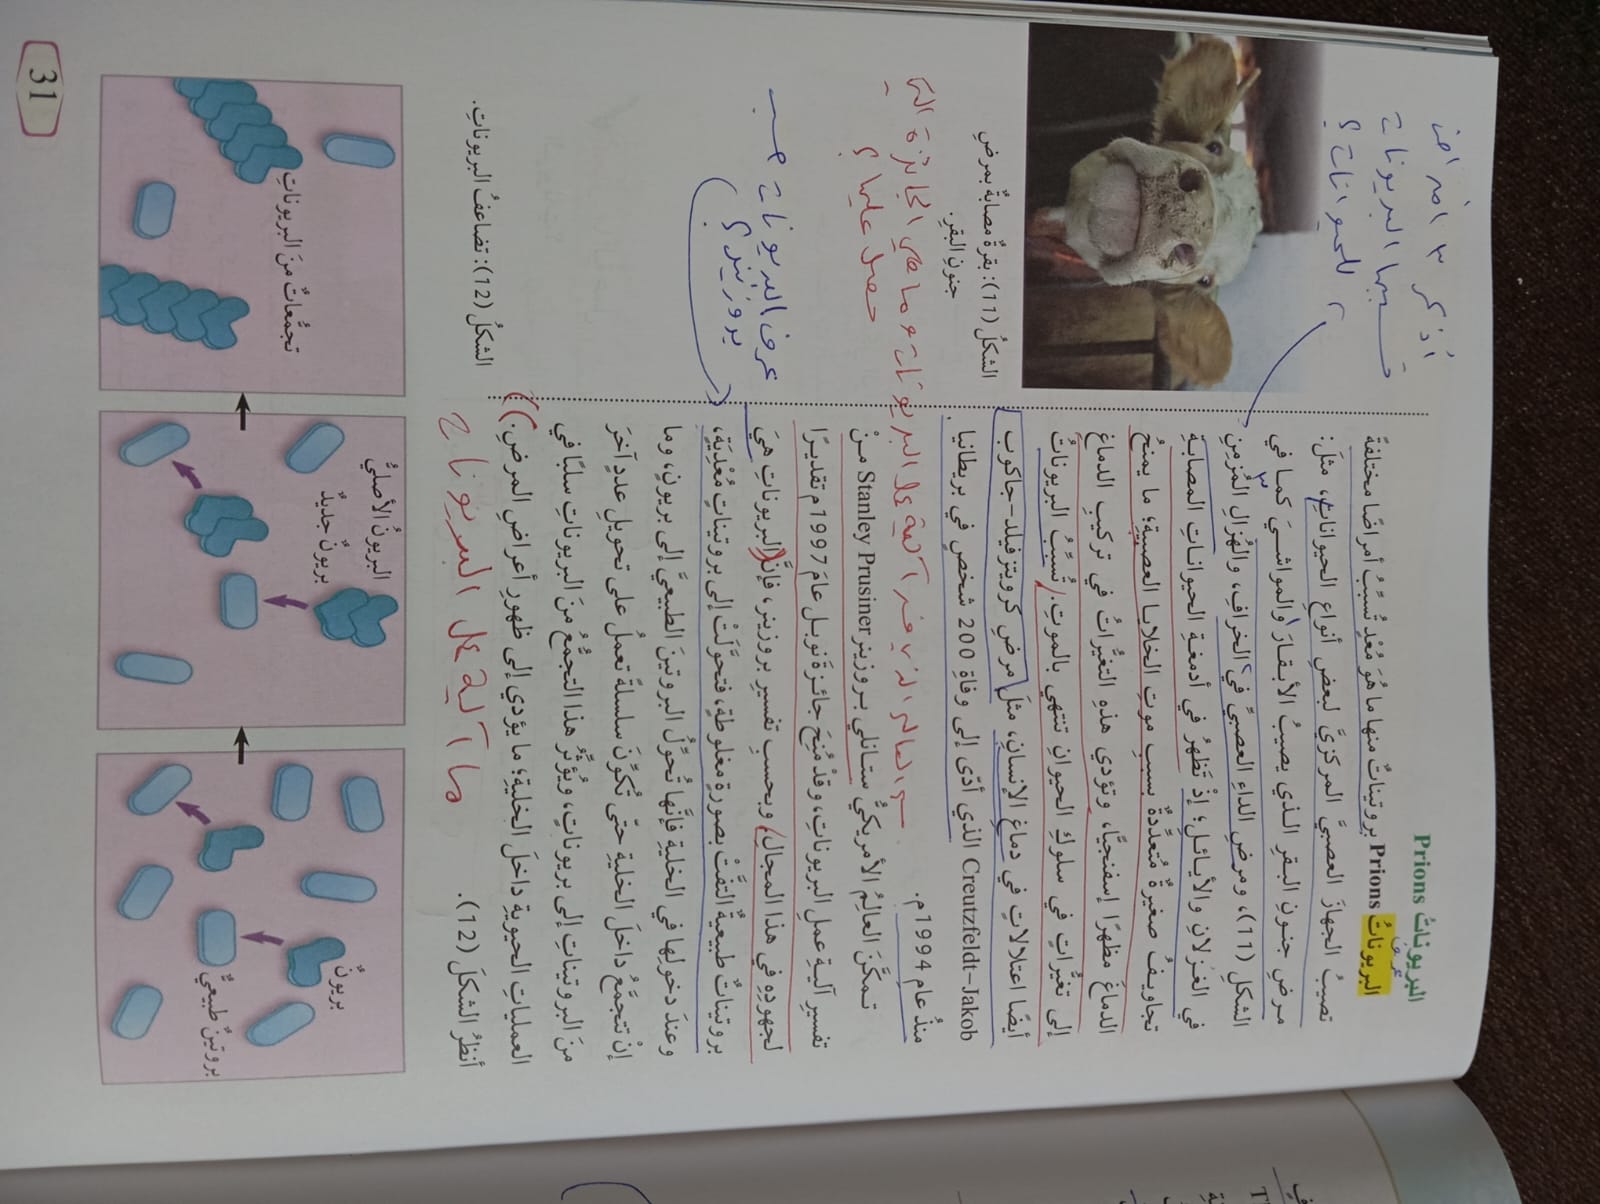 البريوناتُ Prions
البريوناتُ Prions بروتيناتٌ منها ما هوَ مُعْدٍ تُسبِّبُ أمراضًا مختلفةً
تصيبُ الجهازَ العصبيَّ المركزيَّ لبعضِ أنواعِ الحيواناتِ، مثلَ:
مرضِ جنونِ البقرِ الذي يصيبُ الأبقارَ والمواشيَ كما في
الشكلِ (11)، ومرضِ الداءِ العصبيِّ في الخرافِ، والهُزالِ المُزمِنِ
في الغزلانِ والأيائلِ؛ إذْ تَظهرُ في أدمغةِ الحيواناتِ المصابةِ
تجاويفُ صغيرةٌ مُتعدِّدةٌ بسببِ موتِ الخلايا العصبيةِ؛ ما يمنحُ
الدماغَ مظهرًا إسفنجيًّا، وتؤدي هذهِ التغيُّراتُ في تركيبِ الدماغِ
إلى تغيُّراتٍ في سلوكِ الحيوانِ تنتهي بالموتِ. تُسبِّبُ البريوناتُ
أيضًا اعتلالاتٍ في دماغِ الإنسانِ، مثلَ مرضِ كرويتزفيلد-جاكوب
Creutzfeldt-Jakob الذي أدّى إلى وفاةِ 200 شخصٍ في بريطانيا
منذُ عام 1994م.
تمكَّنَ العالِمُ الأمريكيُّ ستانلي بروزينر Stanley Prusiner منْ
تفسيرِ آليةِ عملِ البريوناتِ، وقدْ مُنِحَ جائزةَ نوبل عامَ 1997م تقديرًا
لجهودِهِ في هذا المجالِ. وبحسبِ تفسيرِ بروزينر، فإنَّ البريوناتِ هيَ
بروتيناتٌ طبيعيةٌ التفَّتْ بصورةٍ مغلوطةٍ، فتحوَّلَتْ إلى بروتيناتٍ مُعْدِيَةٍ،
وعندَ دخولِها في الخليةِ فإنَّها تُحوِّلُ البروتينَ الطبيعيَّ إلى بريونٍ، وما
إنْ تتجمَّعُ داخلَ الخليةِ حتّى تُكوِّنَ سلسلةً تعملُ على تحويلِ عددٍ آخرَ
منَ البروتيناتِ إلى بريوناتٍ، ويُؤثِّرُ هذا التجمُّعُ منَ البريوناتِ سلبًا في
العملياتِ الحيويةِ داخلَ الخليةِ؛ ما يؤدي إلى ظهورِ أعراضِ المرضِ.
أنظرُ الشكلَ (12).
ما آلية عمل البريونات ؟
أذكر ٣ أمراض
تسببها البريونات
للحيوانات ؟
الشكلُ (11): بقرةٌ مصابةٌ بمرضِ
جنونِ البقرِ.
العالم الذي فسر آلية عمل البريونات وما هي الجائزة التي
حصل عليها ؟
عرف البريونات حسب
بروزينر ؟
الشكلُ (12): تضاعفُ البريوناتِ.
بريونٌ
بروتينٌ طبيعيٌّ
البريونُ الأصليُّ
بريونٌ جديدٌ
تجمُّعاتٌ منَ البريوناتِ
31